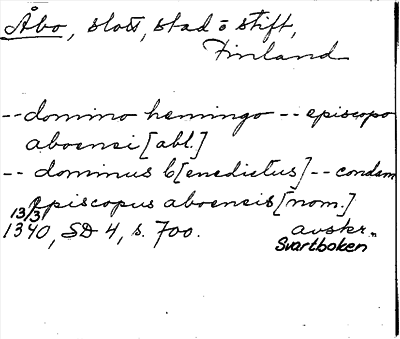 Åbo, slott, stad o stift,
Finland
-- domino hemingo -- episcopo
aboensi [abl.]
-- dominus b[enedictus] -- condam
episcopus aboensis [nom.]
13/3
1340, SD 4, s. 700. avskr.
Svartboken